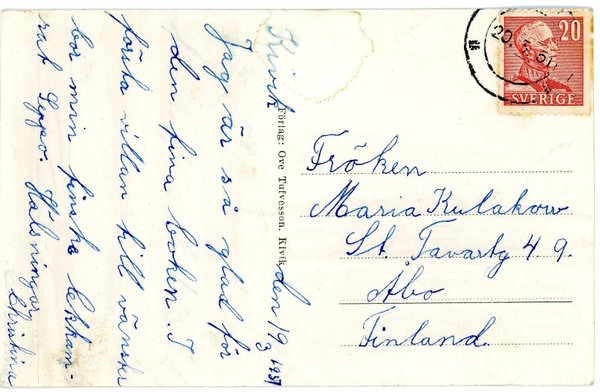 Kivik den 19/3 1951
Jag är så glad för
den fina boken. I
första villan till vänster
bor min finska lekkam-
rat Seppo. Hälsningar
Christina
Förlag: Ove Tufvesson, Kivik
20
SVERIGE
Fröken
Maria Kulakow
St. Tavastg 49.
Åbo
Finland.